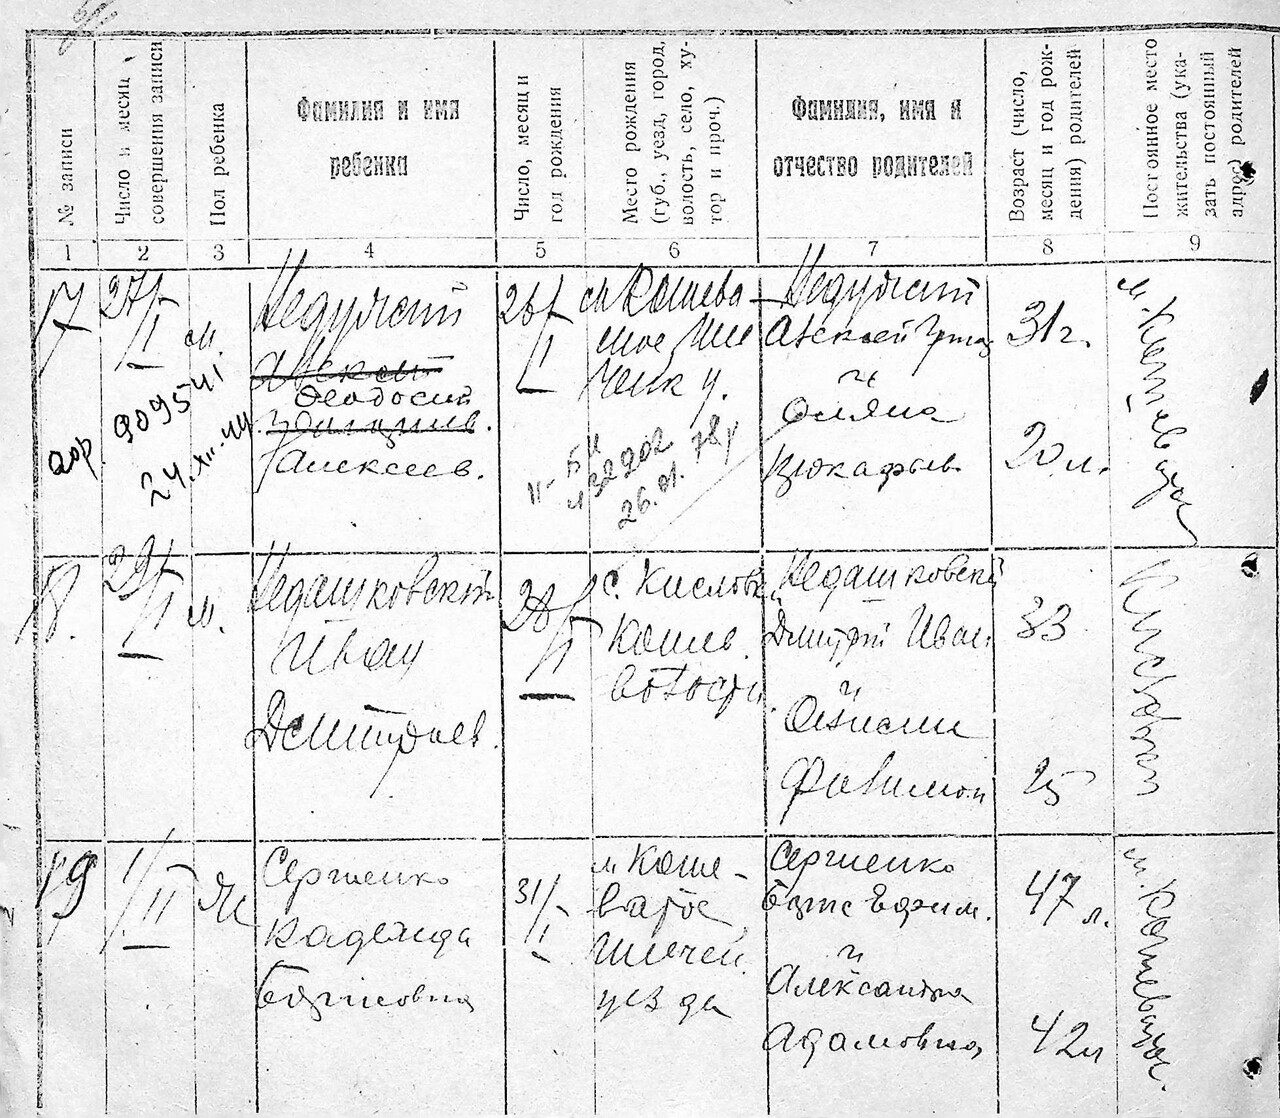 № записи
Число и месяц
совершения записи
Пол ребенка
Фамилия и имя
ребенка
Число, месяц и
год рождения
Место рождения
(губ., уезд, город,
волость, село, ху-
тор и проч.)
Фамилия, имя и
отчество родителей
Возраст (число,
месяц и год рож-
дения) родителей
Постоянное место
жительства (ука-
зать постоянный
адрес) родителей
1 2 3 4 5 6 7 8 9
17
27/I
м
909541
24.XII.44
Феодосий
Алексеев.
28/I
м Кошева-
тое
26.01.78
Алексей
и
Оляна
31 г.
20 л.
м. Кошеватое
18.
29/I
м.
Недашковский
Иван
Дмитриев.
28/I
с. Кисловк
Кошев.
волости
Недашковский
Дмитрий Иван.
и
33
25
19
1/II
Ж
Сергиенко
Надежда
Борисовна
31/I
м Коше-
ватое
уезда
Сергиенко
Борис Ефим.
и
Александра
Адамовна
47 л.
42 л
м. Кошеватое.